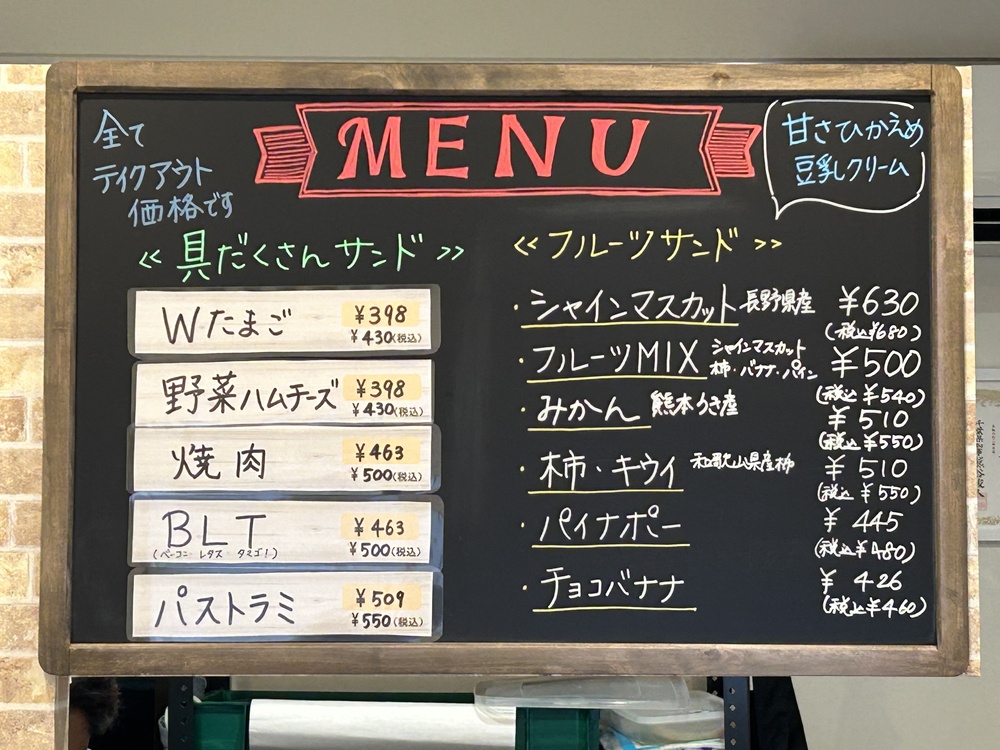 全て
テイクアウト
価格です
MENU
甘さひかえめ
豆乳クリーム
≪具だくさんサンド≫
Wたまご ¥398
¥430(税込)
野菜ハムチーズ ¥398
¥430(税込)
焼肉 ¥463
¥500(税込)
BLT ¥463
(ベーコン レタス タマゴ!) ¥500(税込)
パストラミ ¥509
¥550(税込)
≪フルーツサンド≫
・シャインマスカット 長野県産 ¥630
(税込¥680)
・フルーツMIX シャインマスカット 柿・バナナ・パイン ¥500
(税込¥540)
・みかん 熊本うき産 ¥510
(税込¥550)
・柿・キウイ 和歌山県産柿 ¥510
(税込¥550)
・パイナポー ¥445
(税込¥480)
・チョコバナナ ¥426
(税込¥460)